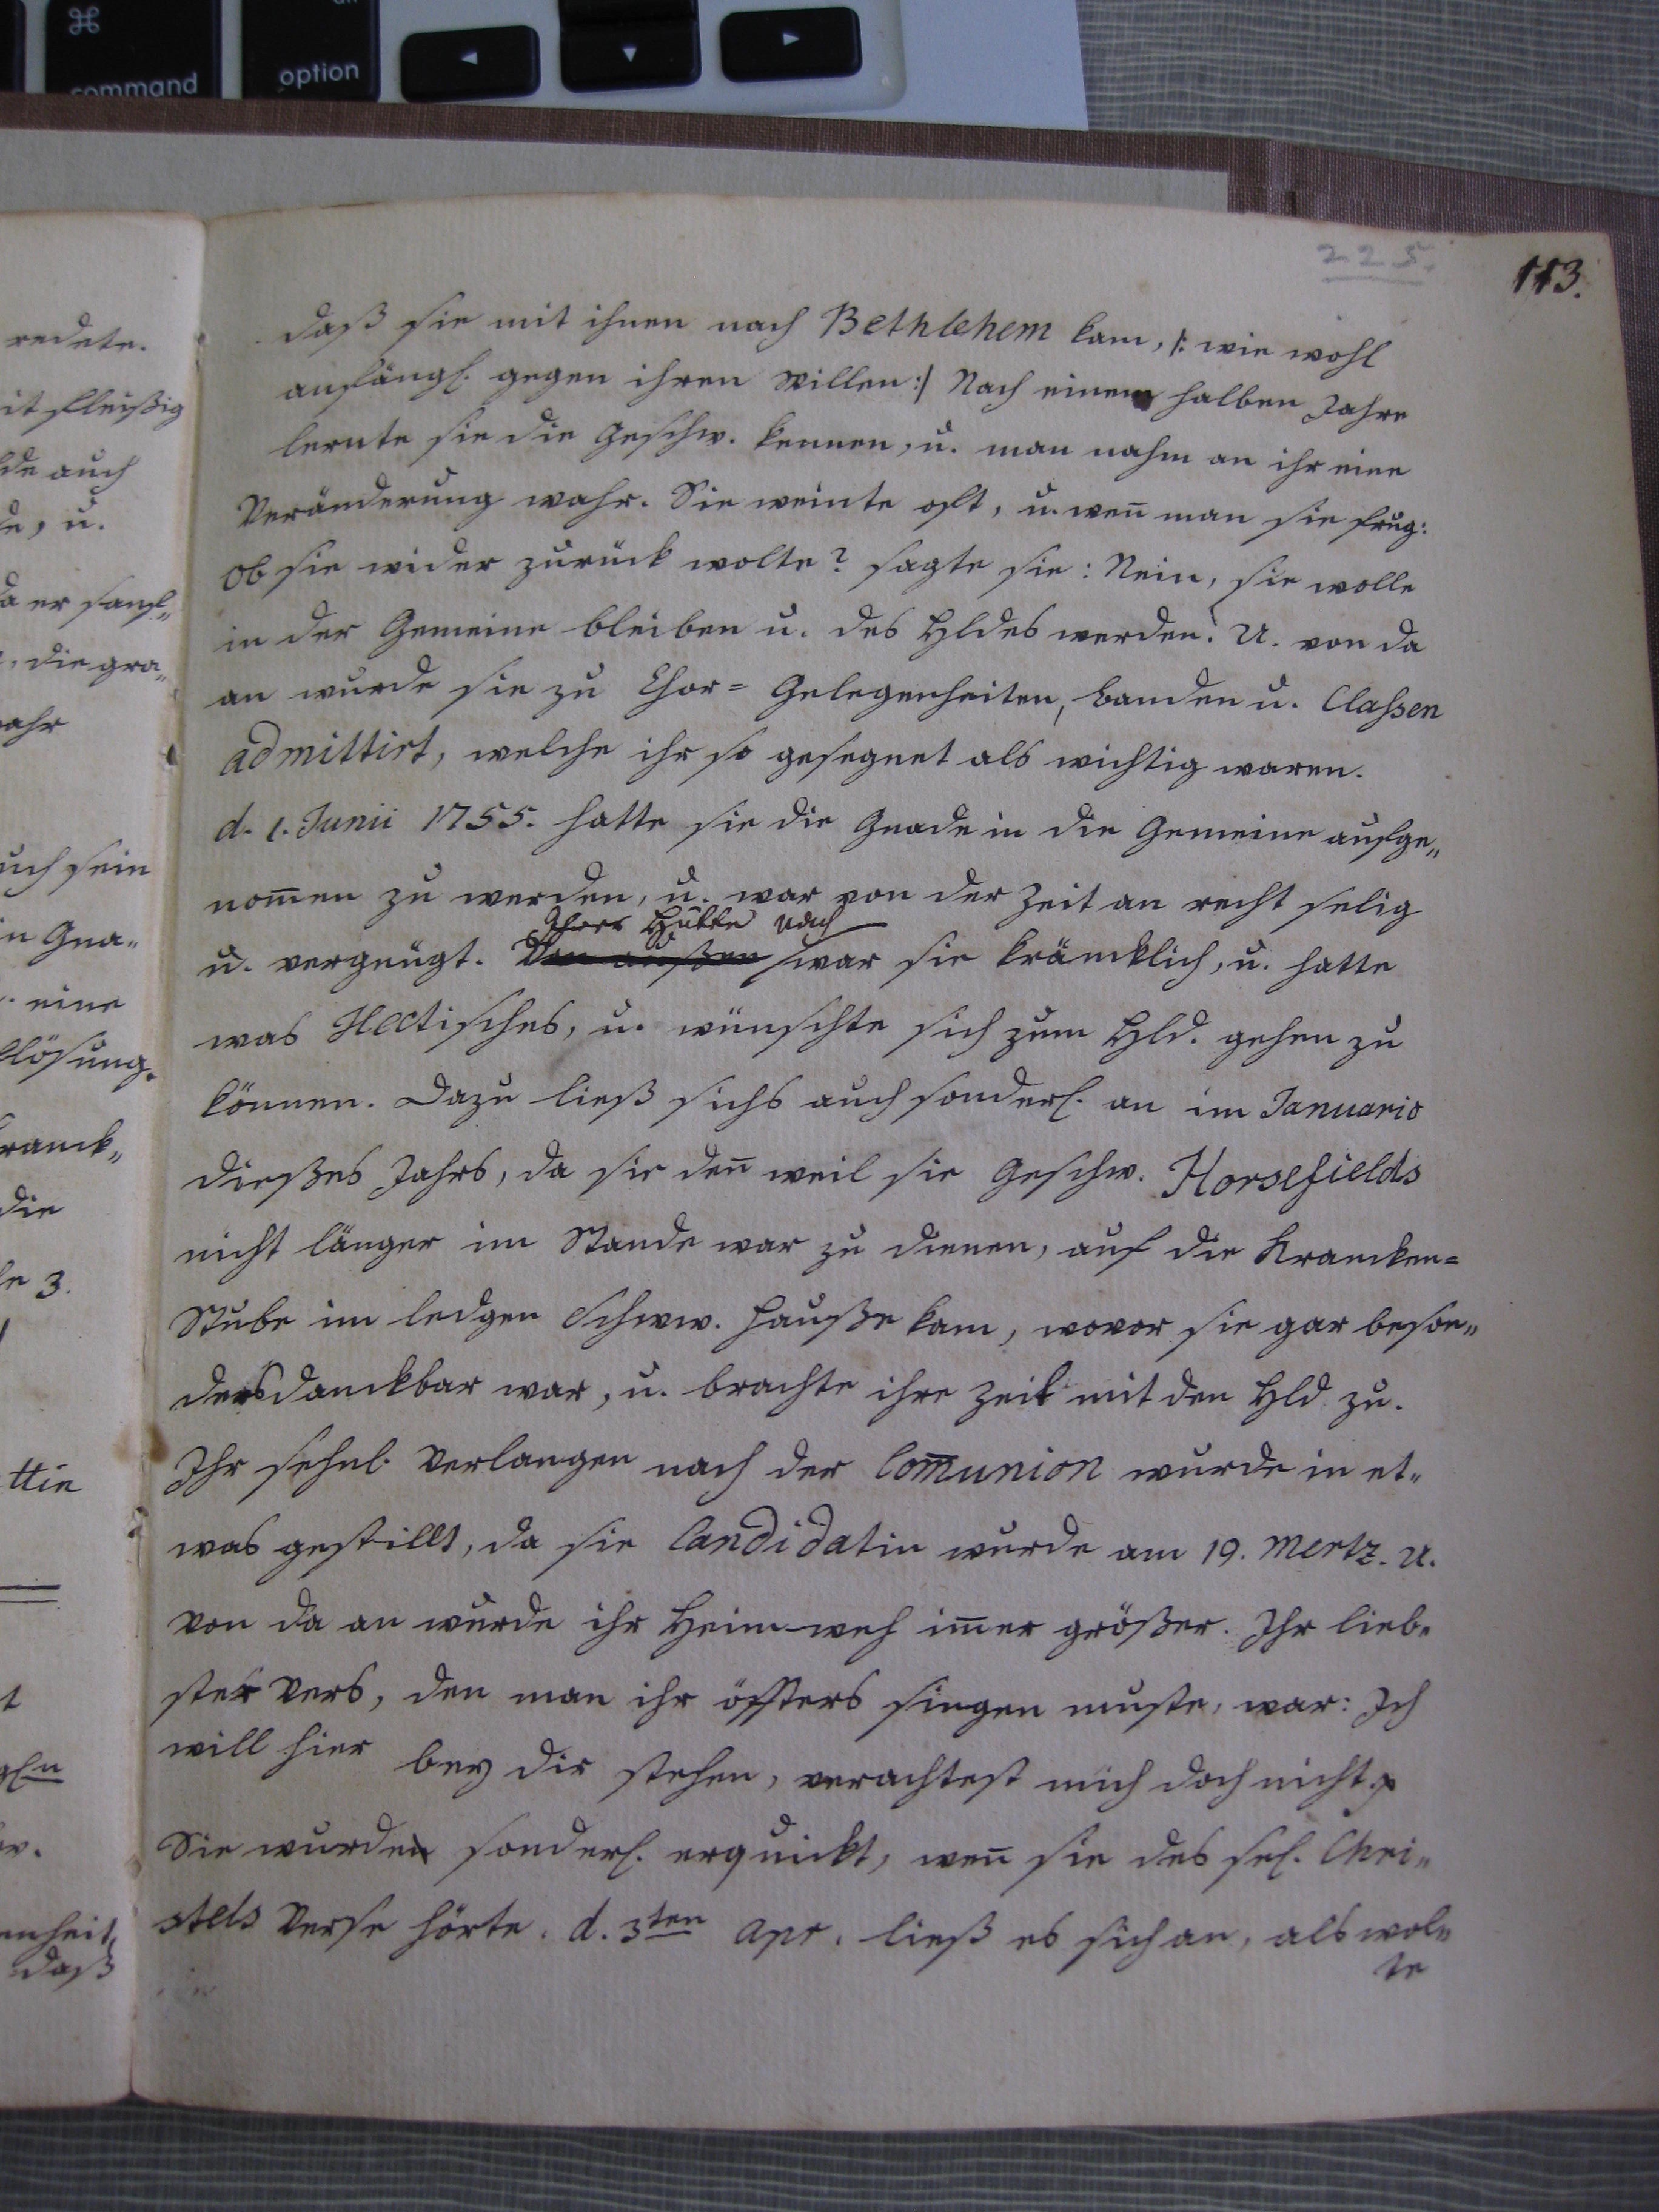 ⌘
command
option
◄
▼
►
225.
113.
daß sie mit ihnen nach Bethlehem kam, /: wie wohl
anfängl. gegen ihren Willen :/ Nach einem halben Jahre
lernte sie die Geschw. kennen, u. man nahm an ihr eine
Veränderung wahr. Sie weinte oft, u. weñ man sie frug:
Ob sie wider zurück wolte? sagte sie: Nein, sie wolle
in der Gemeine bleiben u. des Hldes werden. U. von da
an wurde sie zu Chor= Gelegenheiten, banden u. Classen
admittirt, welche ihr so gesegnet als wichtig waren.
d. 1. Junii 1755. hatte sie die Gnade in die Gemeine aufge„
nom̅en zu werden, u. war von der Zeit an recht selig
Ihrer Hütte nach
u. vergnügt. Von außen war sie kräncklich, u. hatte
was Hectisches, u. wünschte sich zum Hld. gehen zu
können. Dazu ließ sichs auch sonderl. an im Januario
dießes Jahrs, da sie deñ weil sie Geschw. Horsefields
nicht länger im Stande war zu dienen, auf die Krancken=
Stube im ledgen Schww. Hauße kam, wovor sie gar beson„
ders danckbar war, u. brachte ihre Zeit mit den Hld zu.
Ihr sehnl. Verlangen nach der Com̅union wurde in et„
was gestillt, da sie Candidatin wurde am 19. Mertz. U.
von da an wurde ihr Heimweh im̅er größer. Ihr lieb„
ster Vers, den man ihr öffters singen muste, war: Ich
will hier bey dir stehen, verachtest mich doch nicht.
Sie wurden sonderl. erquickt, weñ sie des sel. Chri„
stels Verse hörte. d. 3ten Apr. ließ es sich an, als wol„
te
redete.
it fleißig
de auch
e, u.
da er sanf„
, die gra„
ahr
uch sein
n Gna„
. eine
lösung.
ranck„
die
le 3.
ttin
t
enheit,
daß